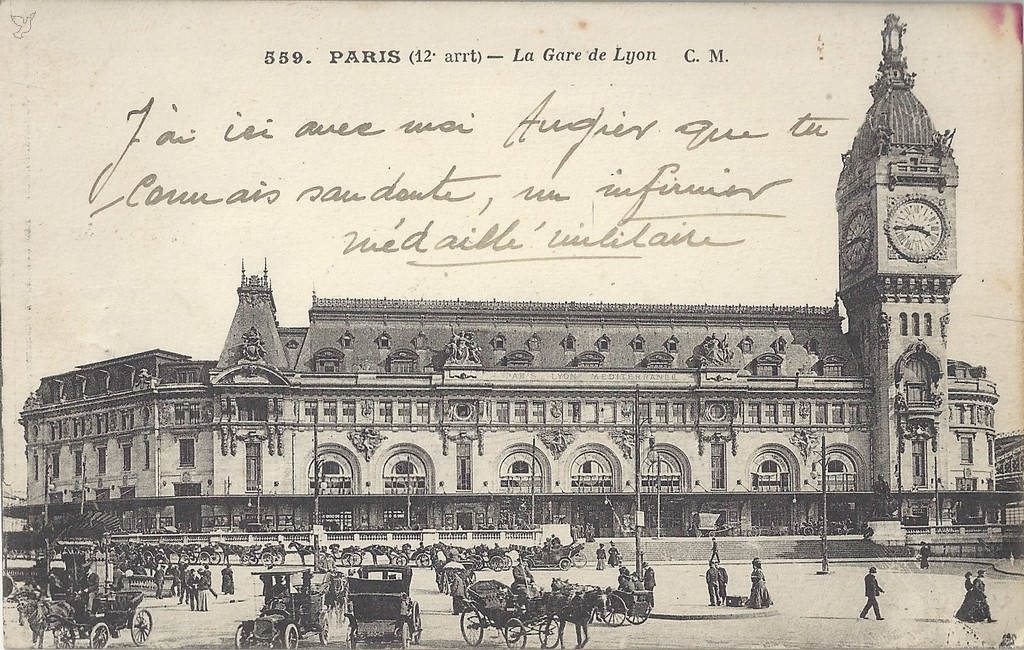 559. PARIS (12e arrt) — La Gare de Lyon C. M.
J'ai ici avec moi Augier que tu
Connais sans doute, un infirmier
médaillé militaire
PARIS LYON MEDITERRANEE